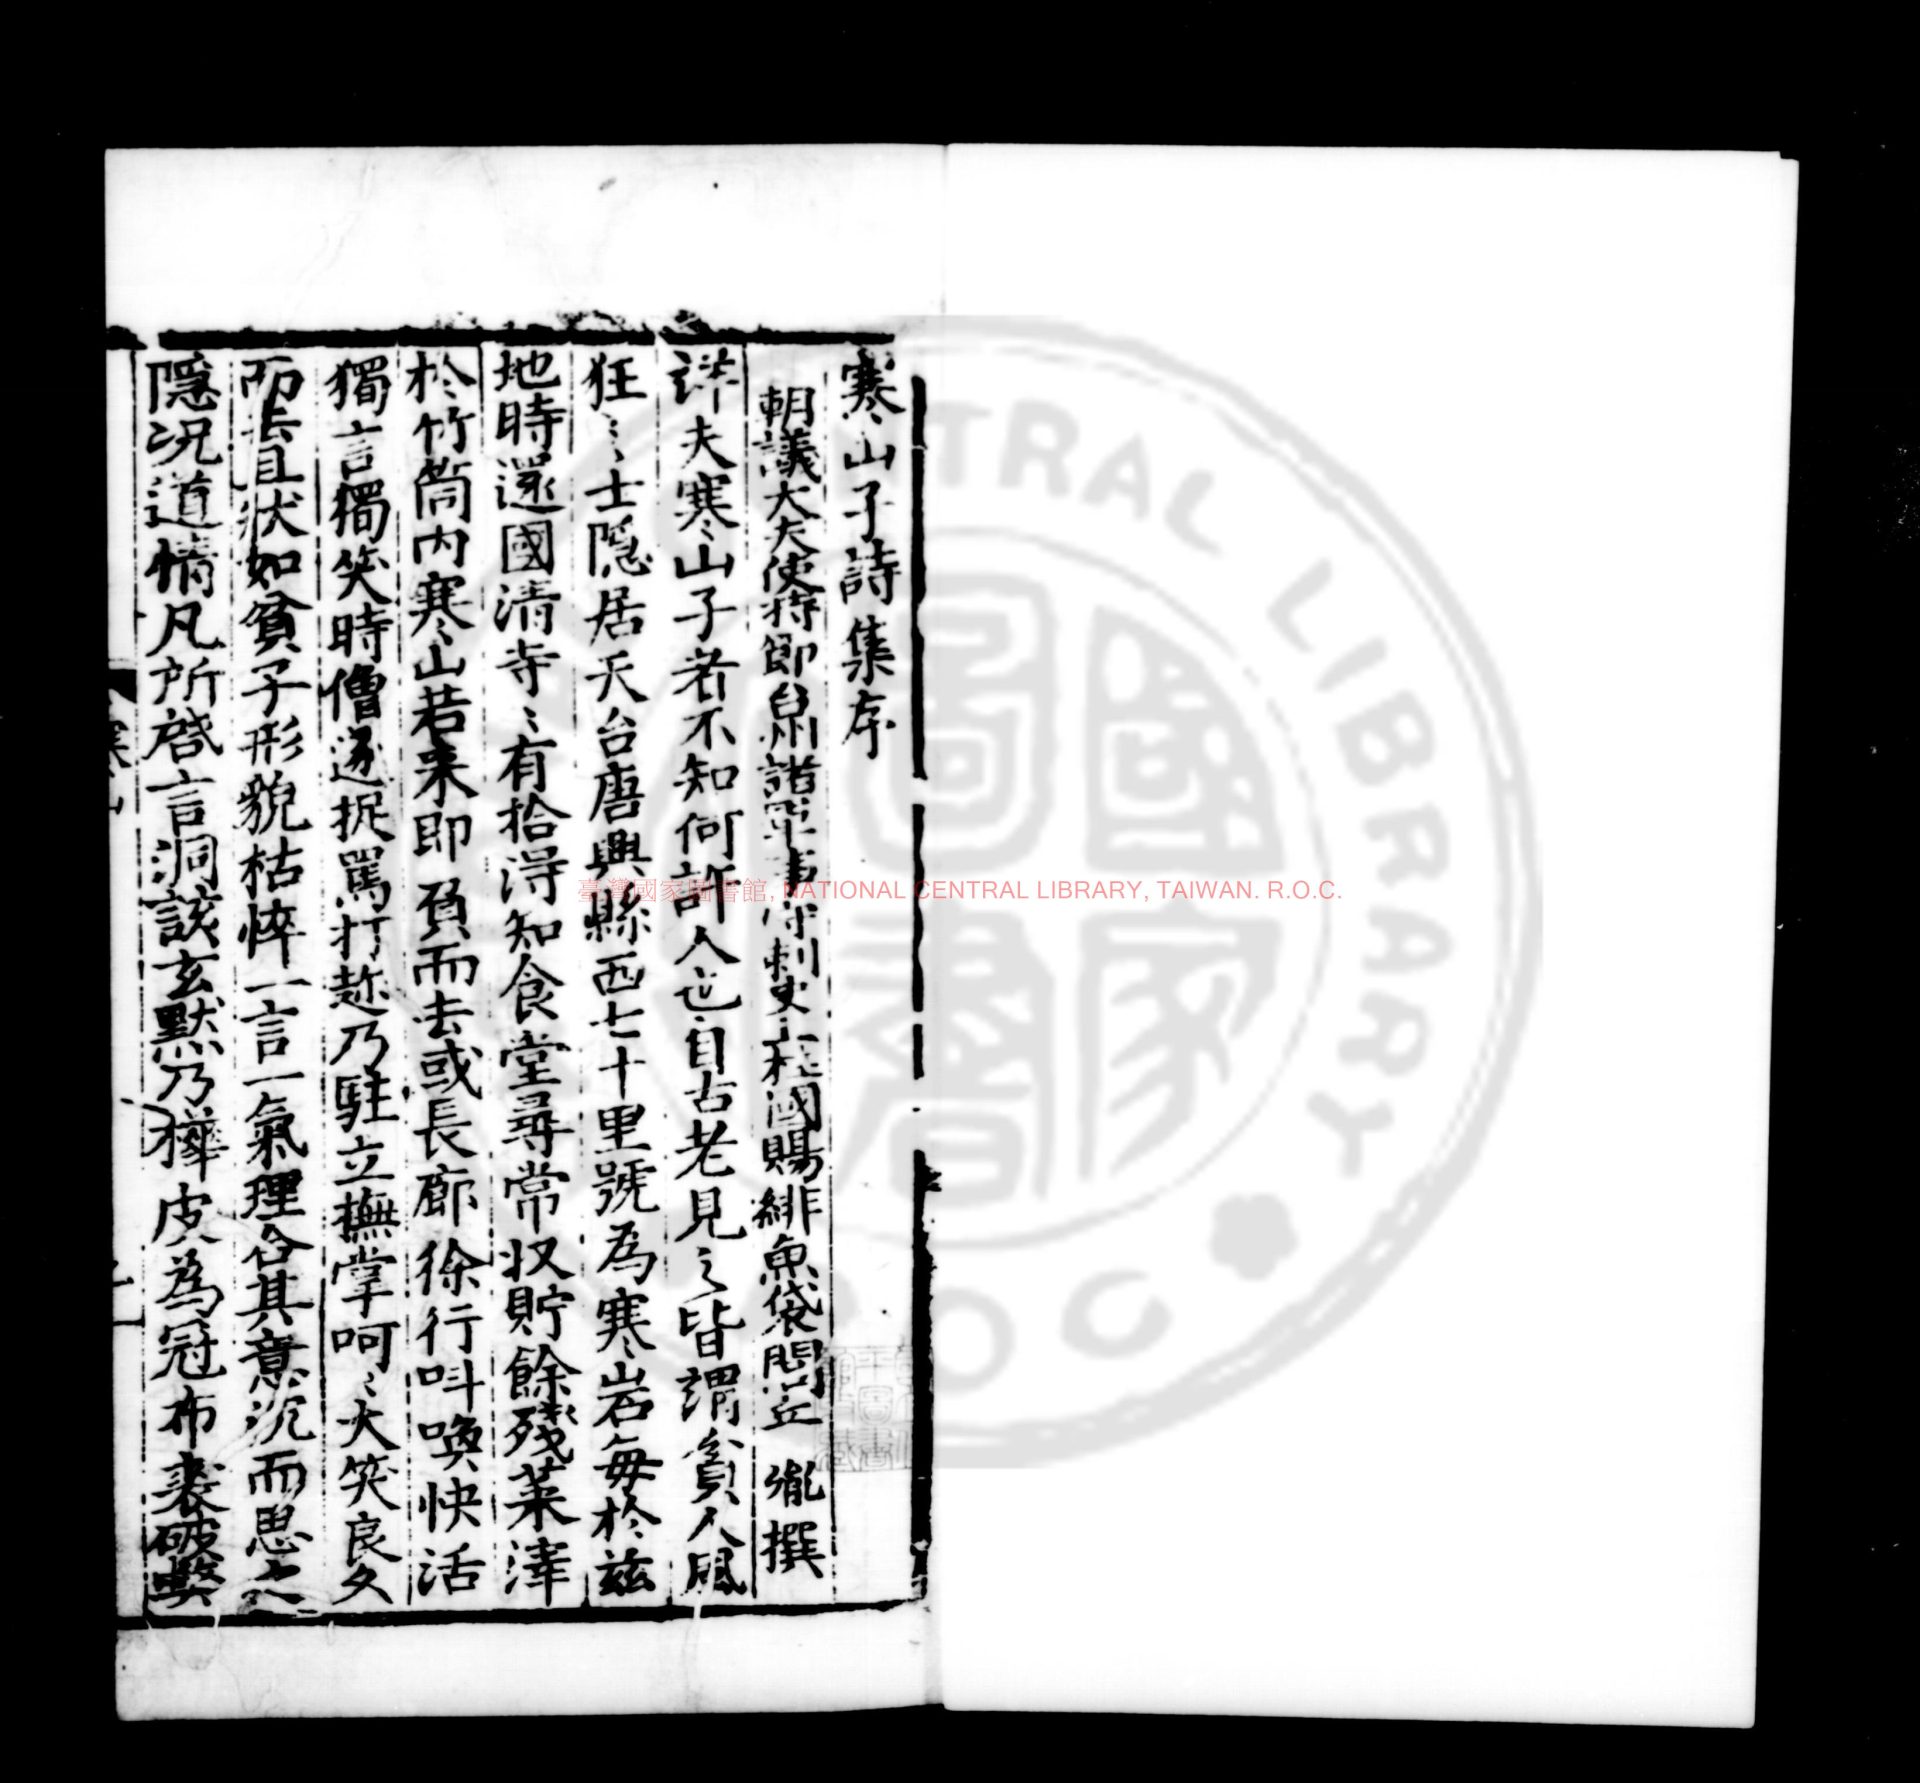 寒山子詩集序
朝議大夫使持節台州諸軍事守刺史上柱國賜緋魚袋閭丘 胤撰
詳夫寒山子者不知何許人也自古老見之皆謂貧人風
狂〻士隱居天台唐興縣西七十里號為寒岩每於茲
地時還國清寺〻有拾得知食堂尋常収貯餘殘菜滓
於竹筒内寒山若來即負而去或長廊徐行叫喚快活
獨言獨笑時僧遂捉罵打趂乃駐立撫掌呵〻大笑良久
而去且状如貧子形貌枯悴一言一氣理合其意沉而思之
隱况道情凡所啓言洞該玄默乃樺皮為冠布裘破弊
寒山
臺灣國家圖書館, NATIONAL CENTRAL LIBRARY, TAIWAN. R.O.C.
CENTRAL LIBRARY
R.O.C.
國家圖書